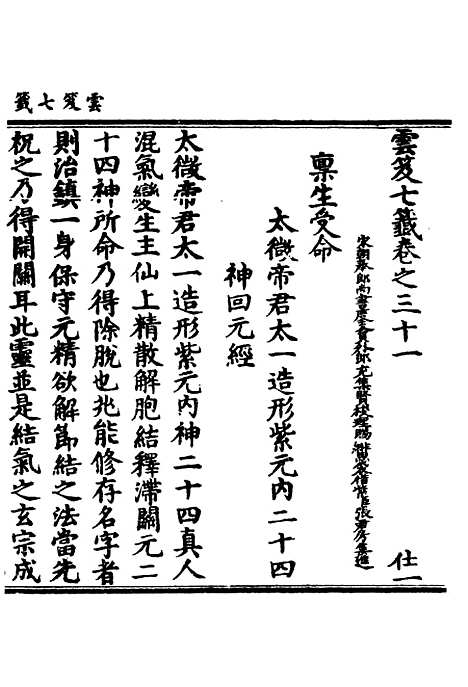 雲笈七籤
雲笈七籤卷之三十一　仕一
宋朝奉郎尚書度支員外郎充集賢校理賜緋魚袋借紫臣張君房集進
稟生受命
太微帝君太一造形紫元內二十四
神回元經
太微帝君太一造形紫元內神二十四真人
混氣變生主仙上精散解胞結釋滯關元二
十四神所命乃得除脫也兆能修存名字者
則治鎮一身保守元精欲解節結之法當先
祝之乃得開關耳此靈並是結氣之玄宗成